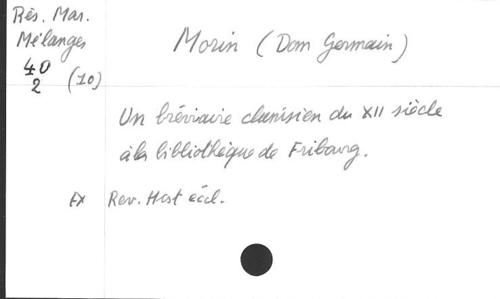 Rés. Mar.
Mélanges
40
2 (10)
Morin (Dom Germain)
Un bréviaire clunisien du XII siècle
à la bibliothèque de Fribourg.
EX Rev. Hist eccl.